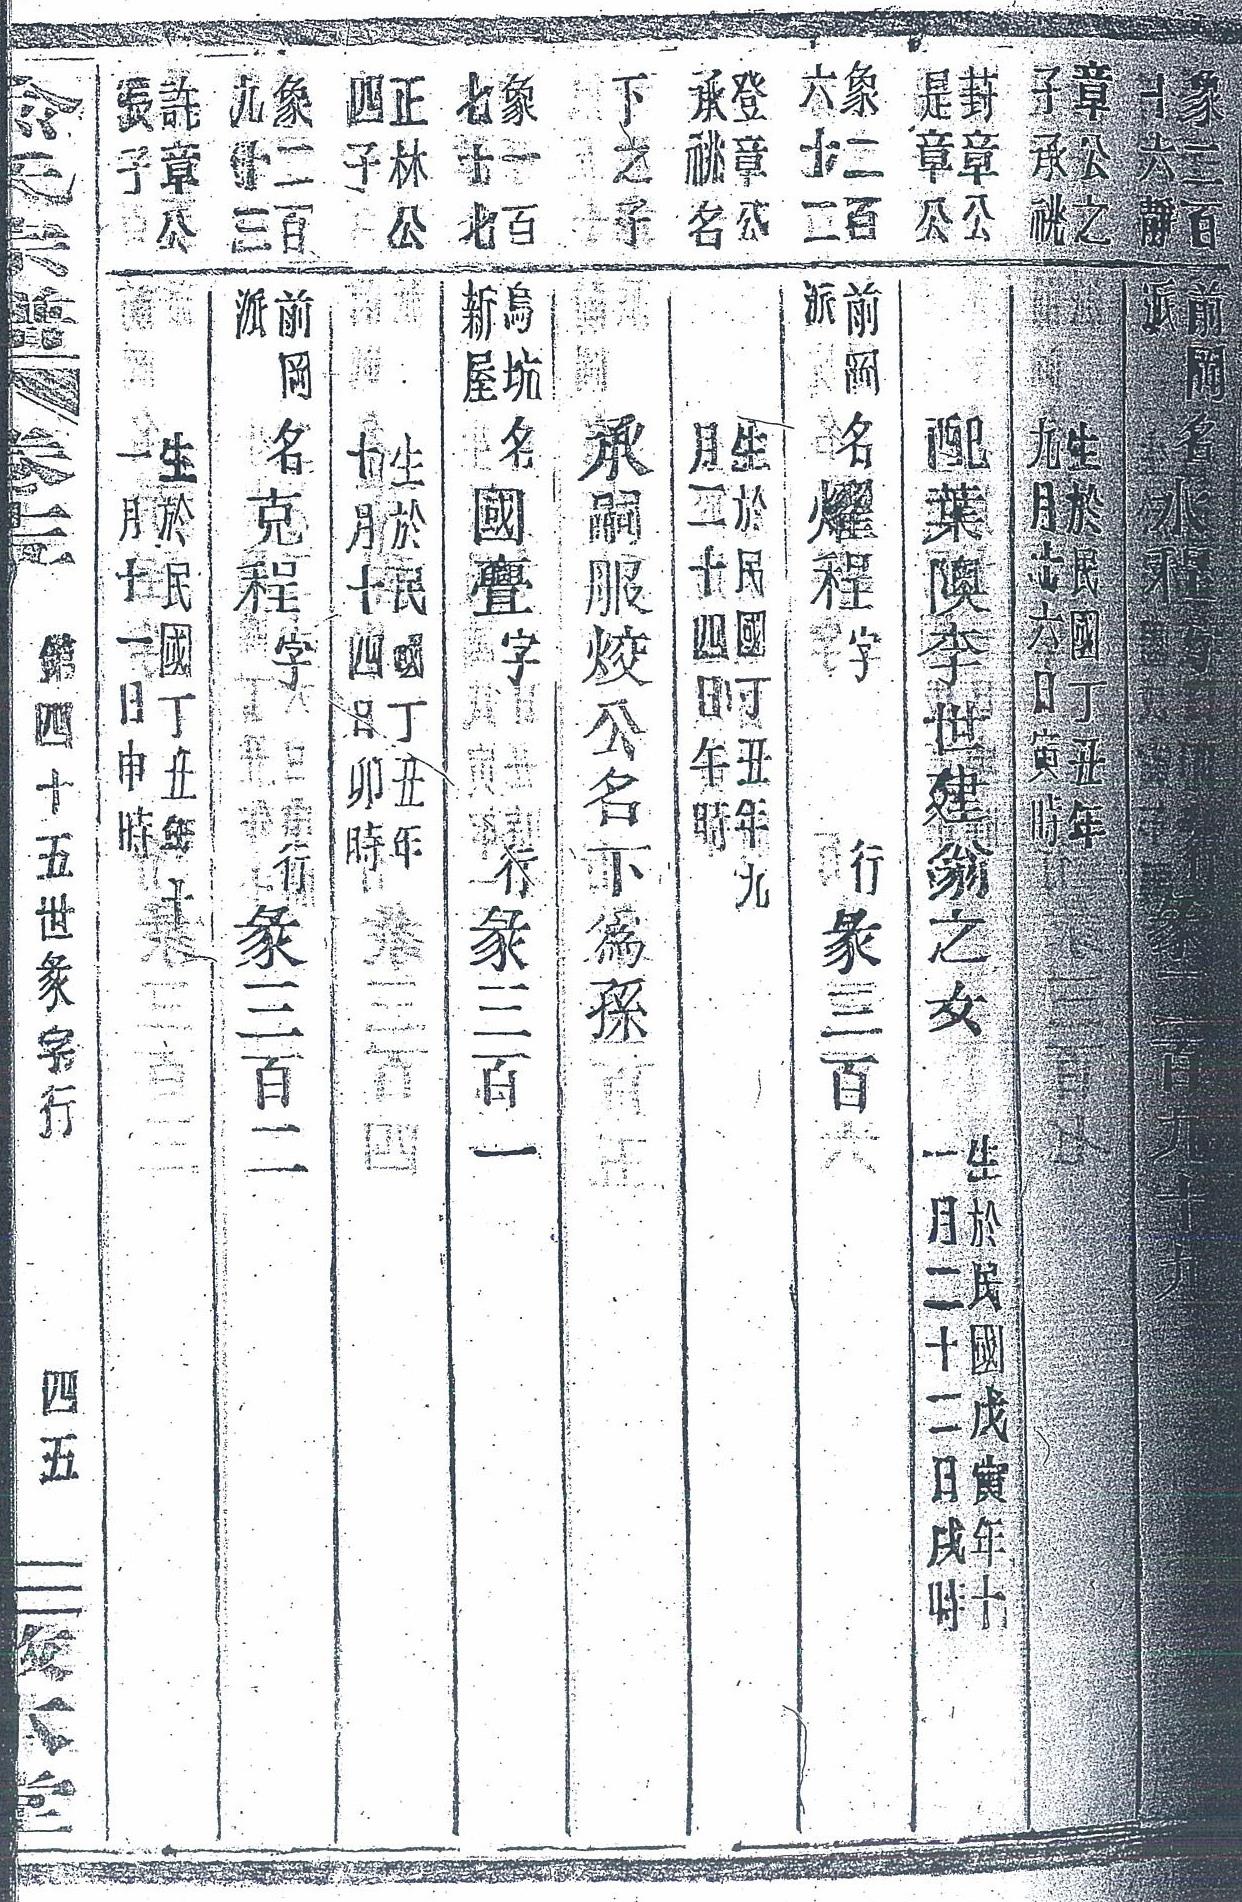 象二百
十六靜
前岡
派
名水程字
行彖二百九十九
章公之
子承祧
生於民國丁丑年
九月廿六日寅時
封章公
是章公
配葉隩李世建翁之女
生於民國戊寅年十
一月二十二日戌時
象二百
六十二
前岡
派
名燿程字
行彖三百
登章公
承祧名
生於民國丁丑年九
月二十四日午時
下之子
承嗣服烄公名下為孫
象一百
七十七
烏坑
新屋
名國亹字
行彖三百一
正林公
四子
生於民國丁丑年
十月十四日卯時
象二百
九十三
前岡
派
名克程字
行彖三百二
許章公
長子
生於民國丁丑年十
一月十一日申時
卷
第四十五世彖字行
四五